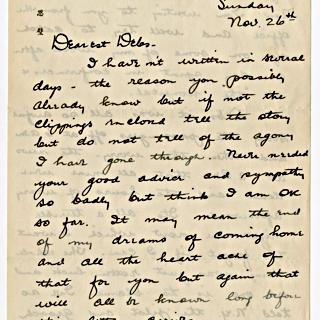 Sunday
Nov. 26th
Dearest Debs-
I haven't written in several
days - the reason you possibly
already know but if not the
clippings inclosed tell the story
but do not tell of the agony
I have gone through. Never needed
your good advice and sympathy
so badly but think I am OK
so far. It may mean the end
of my dreams of coming home
and all the heart ache of
that for you but again that
will all be known long before
this